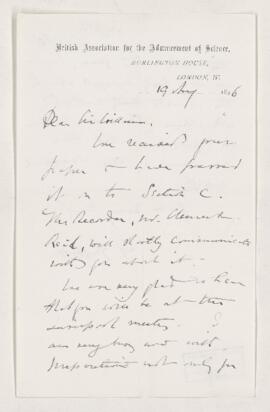 British Association for the Advancement of Science,
BURLINGTON HOUSE,
LONDON, W.
19 Aug 1896
Dear Sir William,
We received your
paper & have passed
it on to Section C.
The Recorder, Mr. Clement
Reid, will shortly communicate
with you about it.
We are very glad to hear
that you will be at the
Liverpool meeting. I
am very busy now with
preparations not only for